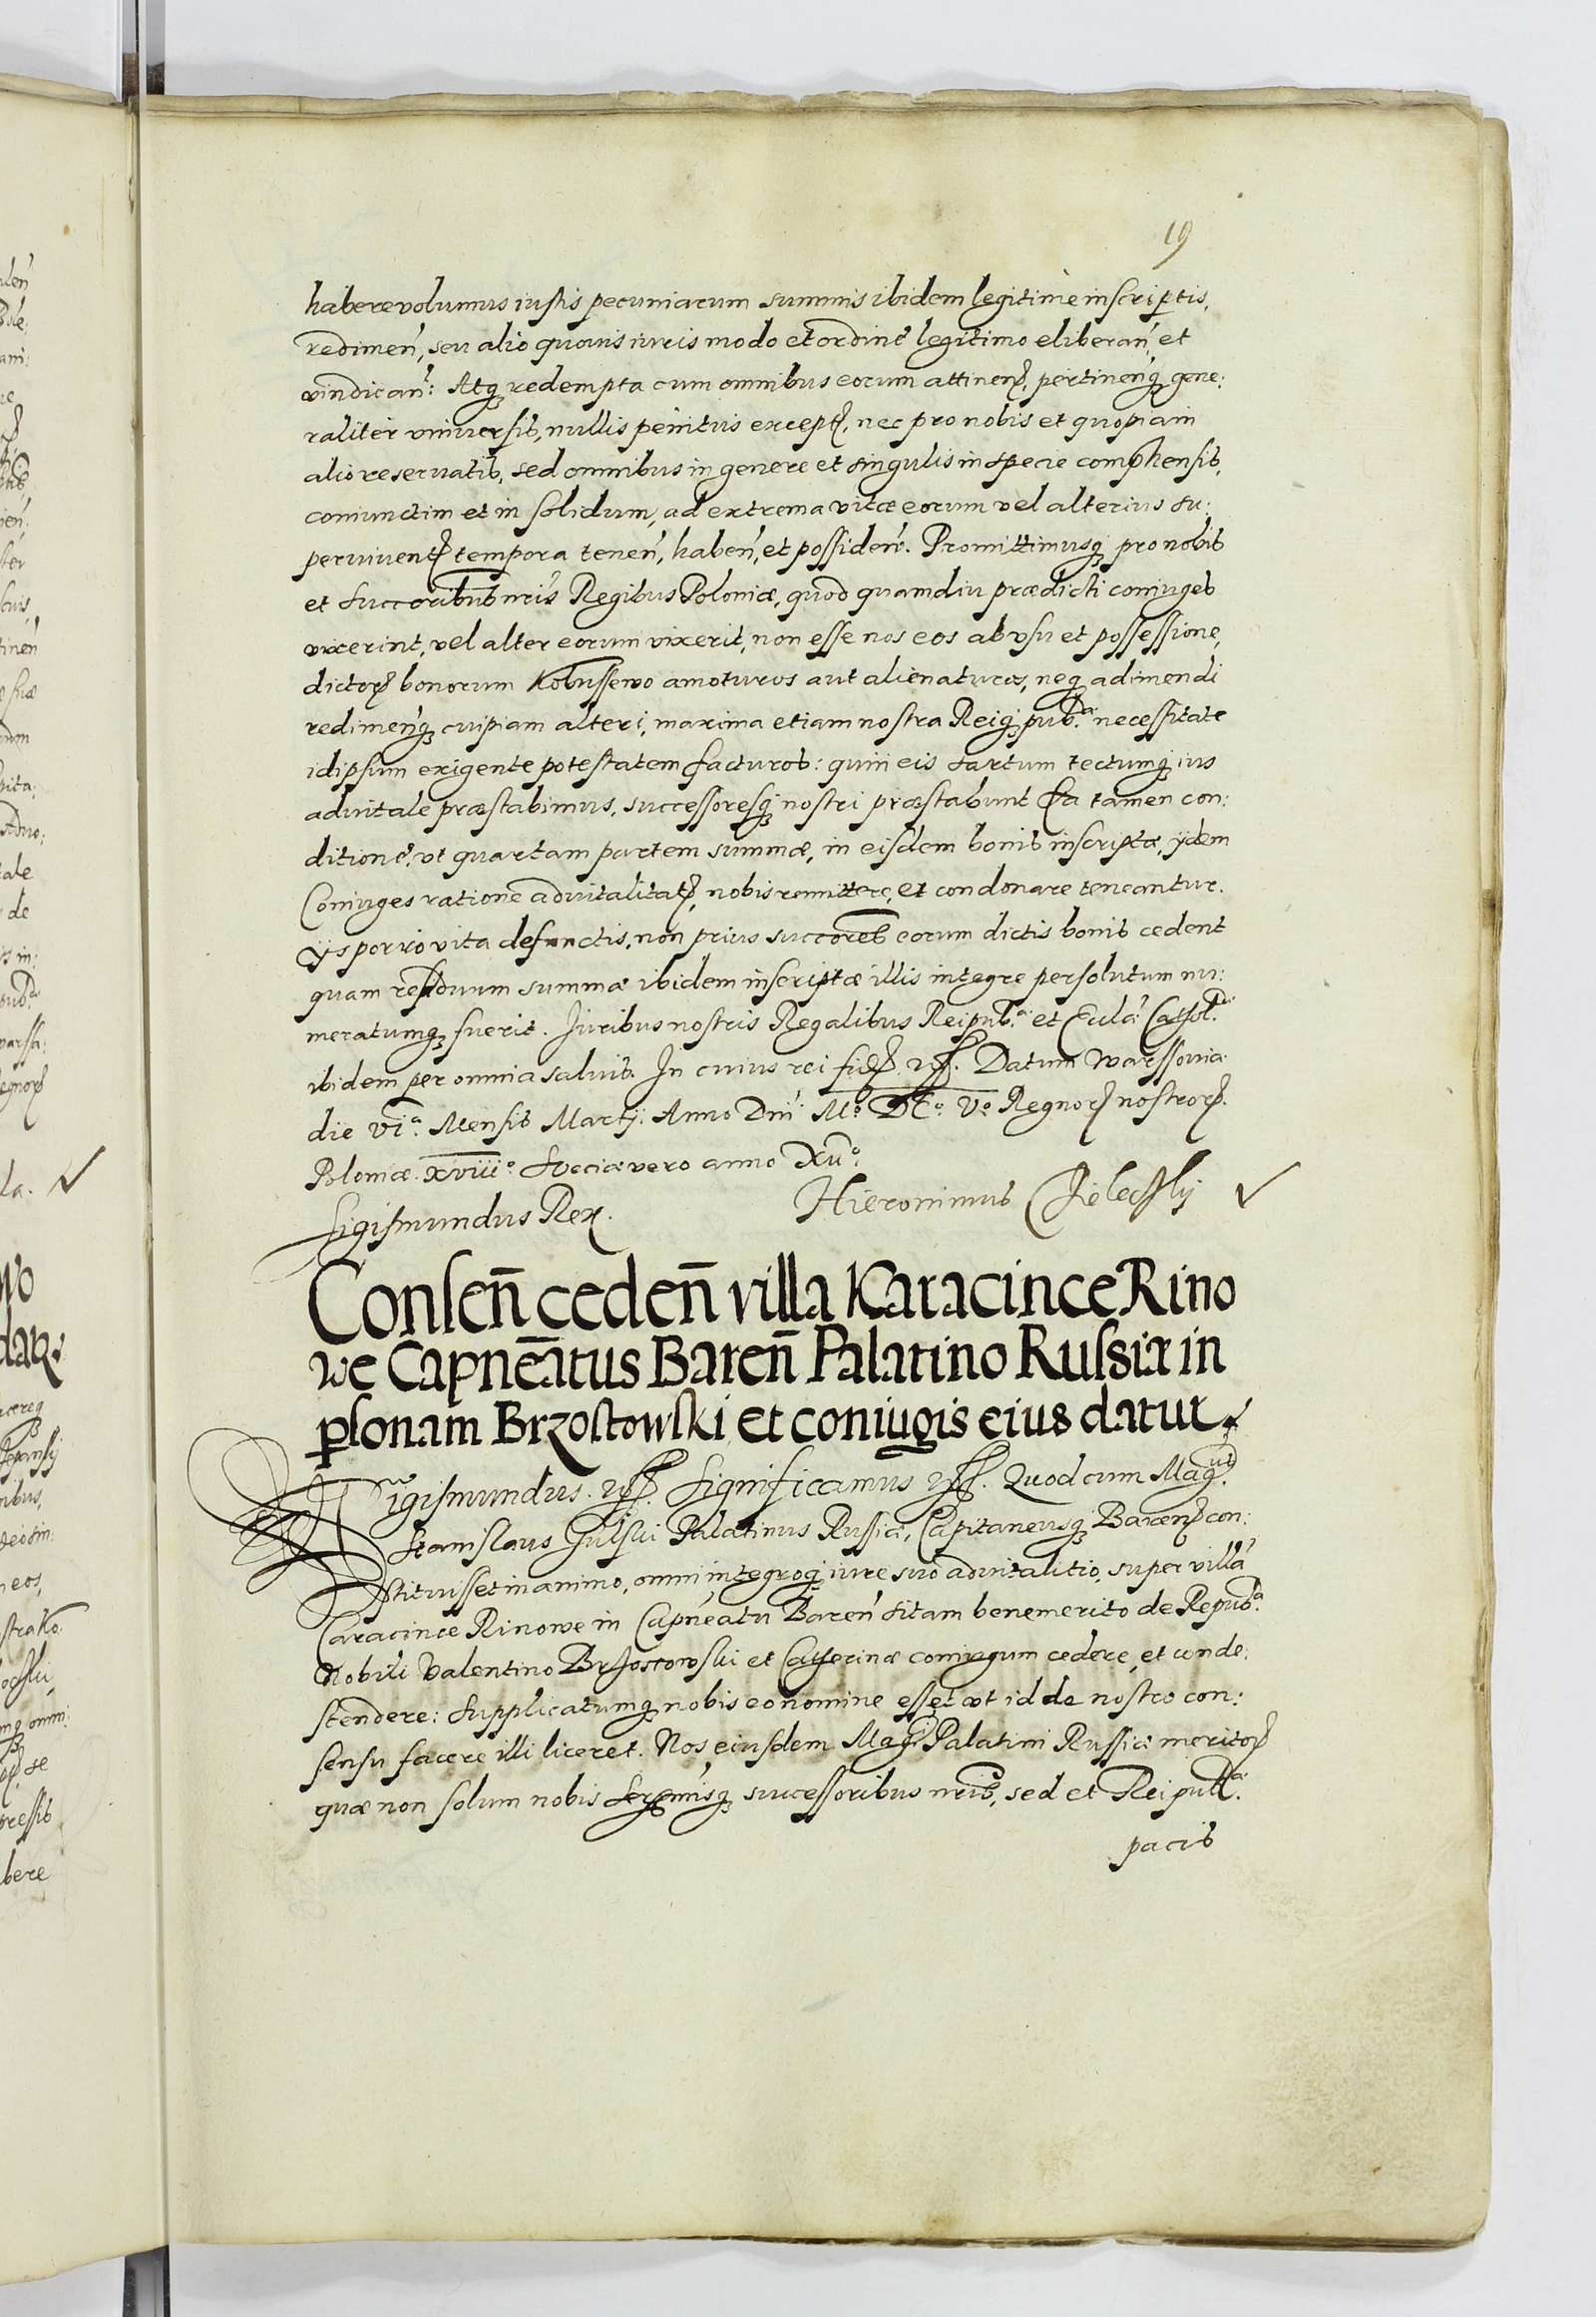 19
habere volumus iustis pecuniarum summis ibidem legitime inscriptis,
redimen̄, seu alio quovis iuris modo et ordine legitimo eliberan̄, et
vindican̄: Atq₃ redempta cum omnibus eorum attinenꝭ, pertinenq₃ gene:
raliter universis, nullis penitus exceptꝭ, nec pro nobis et quopiam
alio reservatis, sed omnibus in genere et singulis in specie comphensis,
coniunctim et in solidum, ad extrema vitæ eorum vel alterius su:
perviventꝭ tempora tenen̄, haben̄, et possiden̄. Promittimusq₃ pro nobis
et succoribus nris Regibus Poloniæ, quod quamdiu prædicti coniuges
vixerint, vel alter eorum vixerit, non esse nos eos ab vsu et possessione,
dictoꝝ bonorum Kobussewo amoturos aut alienaturos, neq₃ adimendi
redimenq₃ cuipiam alteri, maxima etiam nostra Reiq₃ pub.ᵃ necessitate
idipsum exigente potestatem facturos: quin eis sartum tectumq₃ ius
advitale præstabimus, successoresq₃ nostri præstabunt Ea tamen con:
ditione, vt quartam partem summæ, in eisdem bonis inscriptæ, ijdem
Coniuges ratione advitalitatꝭ, nobis remittere, et condonare teneantur.
ijs porro vita defunctis, non prius succores eorum dictis bonis cedent
quam residuum summæ ibidem inscriptæ illis integre persolutum nu:
meratumq₃ fuerit. Iuribus nostris Regalibus Reipub.ᵃ et Ecclæ Cathol.
ibidem per omnia salvis. In cuius rei fidꝭ. Datum Warssoviæ
die VIᵃ. Mensis Martij. Anno Dnī Mº DCº Vº Regnoꝝ nostroꝝ.
Poloniæ XVIIIº Sveciæ vero anno XIIº.
Sigismundus Rex. Hieronimus
Consen̄ ceden̄ villa Karacince Rino
we Capnēatus Baren̄ Palatino Russiæ in
ꝑsonam Brzostowski et coniugis eius datur
Sigismundus. Significamus. Quod cum Mag.
Stanislaus Gulski Palatinus Russiæ, Capitaneusq₃ Barenꝭ con:
stituisset in animo, omni integroq₃ iure suo advitalitio, super villā
Caracince Rinowe in Capneatu Baren̄ sitam benemerito de Repub.ᵃ
Nobili Valentino Brzostowski et Catherinæ coniugum cedere, et conde:
scendere: Supplicatumq₃ nobis eo nomine esset vt id de nostro con:
sensu facere illi liceret. Nos eiusdem Magci Palatini Russiæ meritoꝝ
quæ non solum nobis Sermisq₃ successoribus nris, sed et Reipub.
pacis